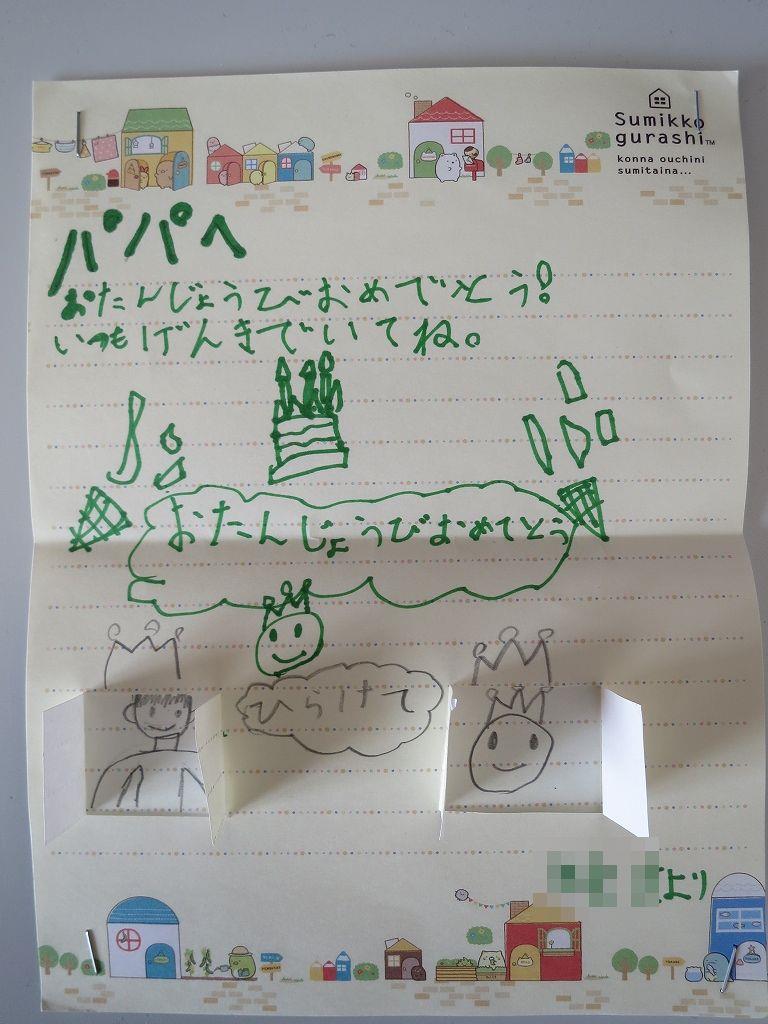 Sumikko
gurashi™
konna ouchini
sumitaina...
パパへ
おたんじょうびおめでとう!
いつもげんきでいてね。
おたんじょうびおめでとう
ひらけて
より